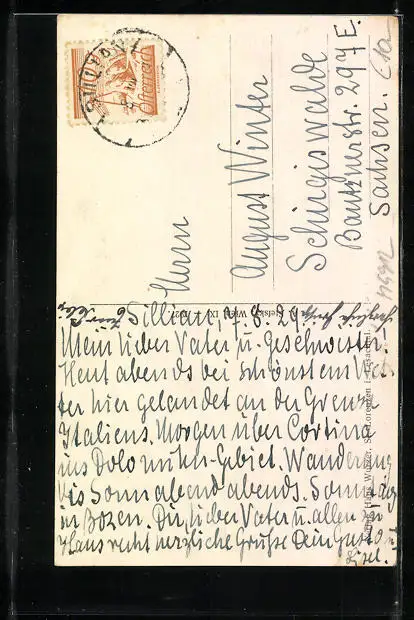 SILLIAN
Österreich
Herrn
August Winter
Schirgiswalde
Bautznerstr. 297E.
Sachsen.
Sillian, 7.8.29.
Mein lieber Vater u. Geschwister.
Heut abends bei schönstem Wet-
ter hier gelandet an der Grenze
Italiens. Morgen über Cortina
ins Dolomiten-Gebiet. Wanderung
bis Sonnabend abends. Sonntag
in Bozen. Dir lieber Vater u. allen zu
Haus recht herzliche Grüße Dein Gustl u.
Lisel.